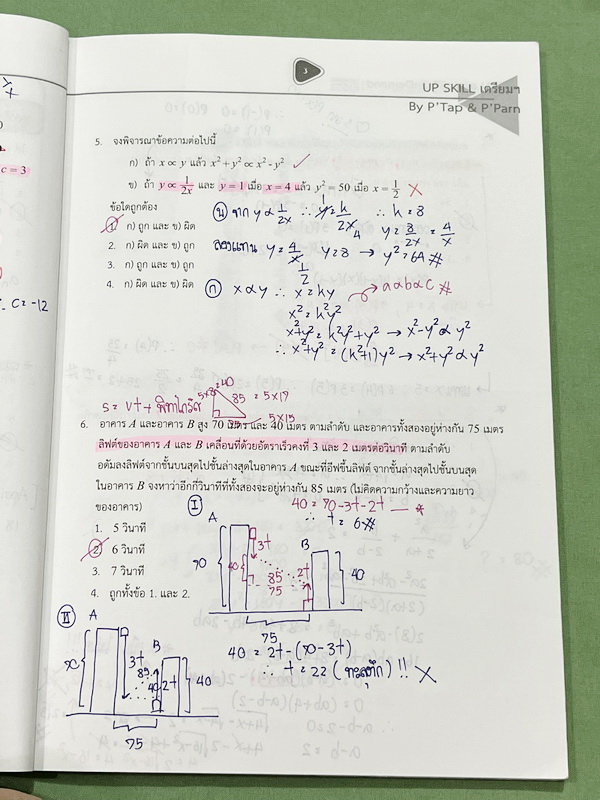 3
UP SKILL เตรียมฯ
By P'Tap & P'Parn
5. จงพิจารณาข้อความต่อไปนี้
ก) ถ้า x ∝ y แล้ว x² + y² ∝ x² - y² ✓
ข) ถ้า y ∝ 1/2x และ y = 1 เมื่อ x = 4 แล้ว y² = 50 เมื่อ x = 1/2 ✗
ข้อใดถูกต้อง
1. ก) ถูก และ ข) ผิด
2. ก) ผิด และ ข) ถูก
3. ก) ถูก และ ข) ถูก
4. ก) ผิด และ ข) ผิด
c = 3
C = -12
ข จาก y ∝ 1/2x ∴ y = k/2x ∴ k = 8
4 y = 8/2x = 4/x
ลองแทน y = 4/x y = 8 → y² = 64 #
1/2
ก x ∝ y ∴ x = ky → a∝b∝c #
x² = k²y²
x²+y² = k²y²+y² → x²-y² ∝ y²
∴ x²+y² = (k²+1)y² → x²+y² ∝ y²
s = vt + พีทาโกรัส
5×8 = 40
85 = 5×17
5×15
6. อาคาร A และอาคาร B สูง 70 เมตร และ 40 เมตร ตามลำดับ และอาคารทั้งสองอยู่ห่างกัน 75 เมตร
ลิฟต์ของอาคาร A และ B เคลื่อนที่ด้วยอัตราเร็วคงที่ 3 และ 2 เมตรต่อวินาที ตามลำดับ
อดัมลงลิฟต์จากชั้นบนสุดไปชั้นล่างสุดในอาคาร A ขณะที่อีฟขึ้นลิฟต์ จากชั้นล่างสุดไปชั้นบนสุด
ในอาคาร B จงหาว่าอีกกี่วินาทีที่ทั้งสองจะอยู่ห่างกัน 85 เมตร (ไม่คิดความกว้างและความยาว
ของอาคาร)
1. 5 วินาที
2. 6 วินาที
3. 7 วินาที
4. ถูกทั้งข้อ 1. และ 2.
I
40 = 70-3t-2t
∴ t = 6 #
A
B
70
3t
40
85
75
2t
40
75
II
A
B
70
3t
85
40
2t
40
75
40 = 2t - (70-3t)
∴ t = 22 (ทะลุตึก) !! ✗